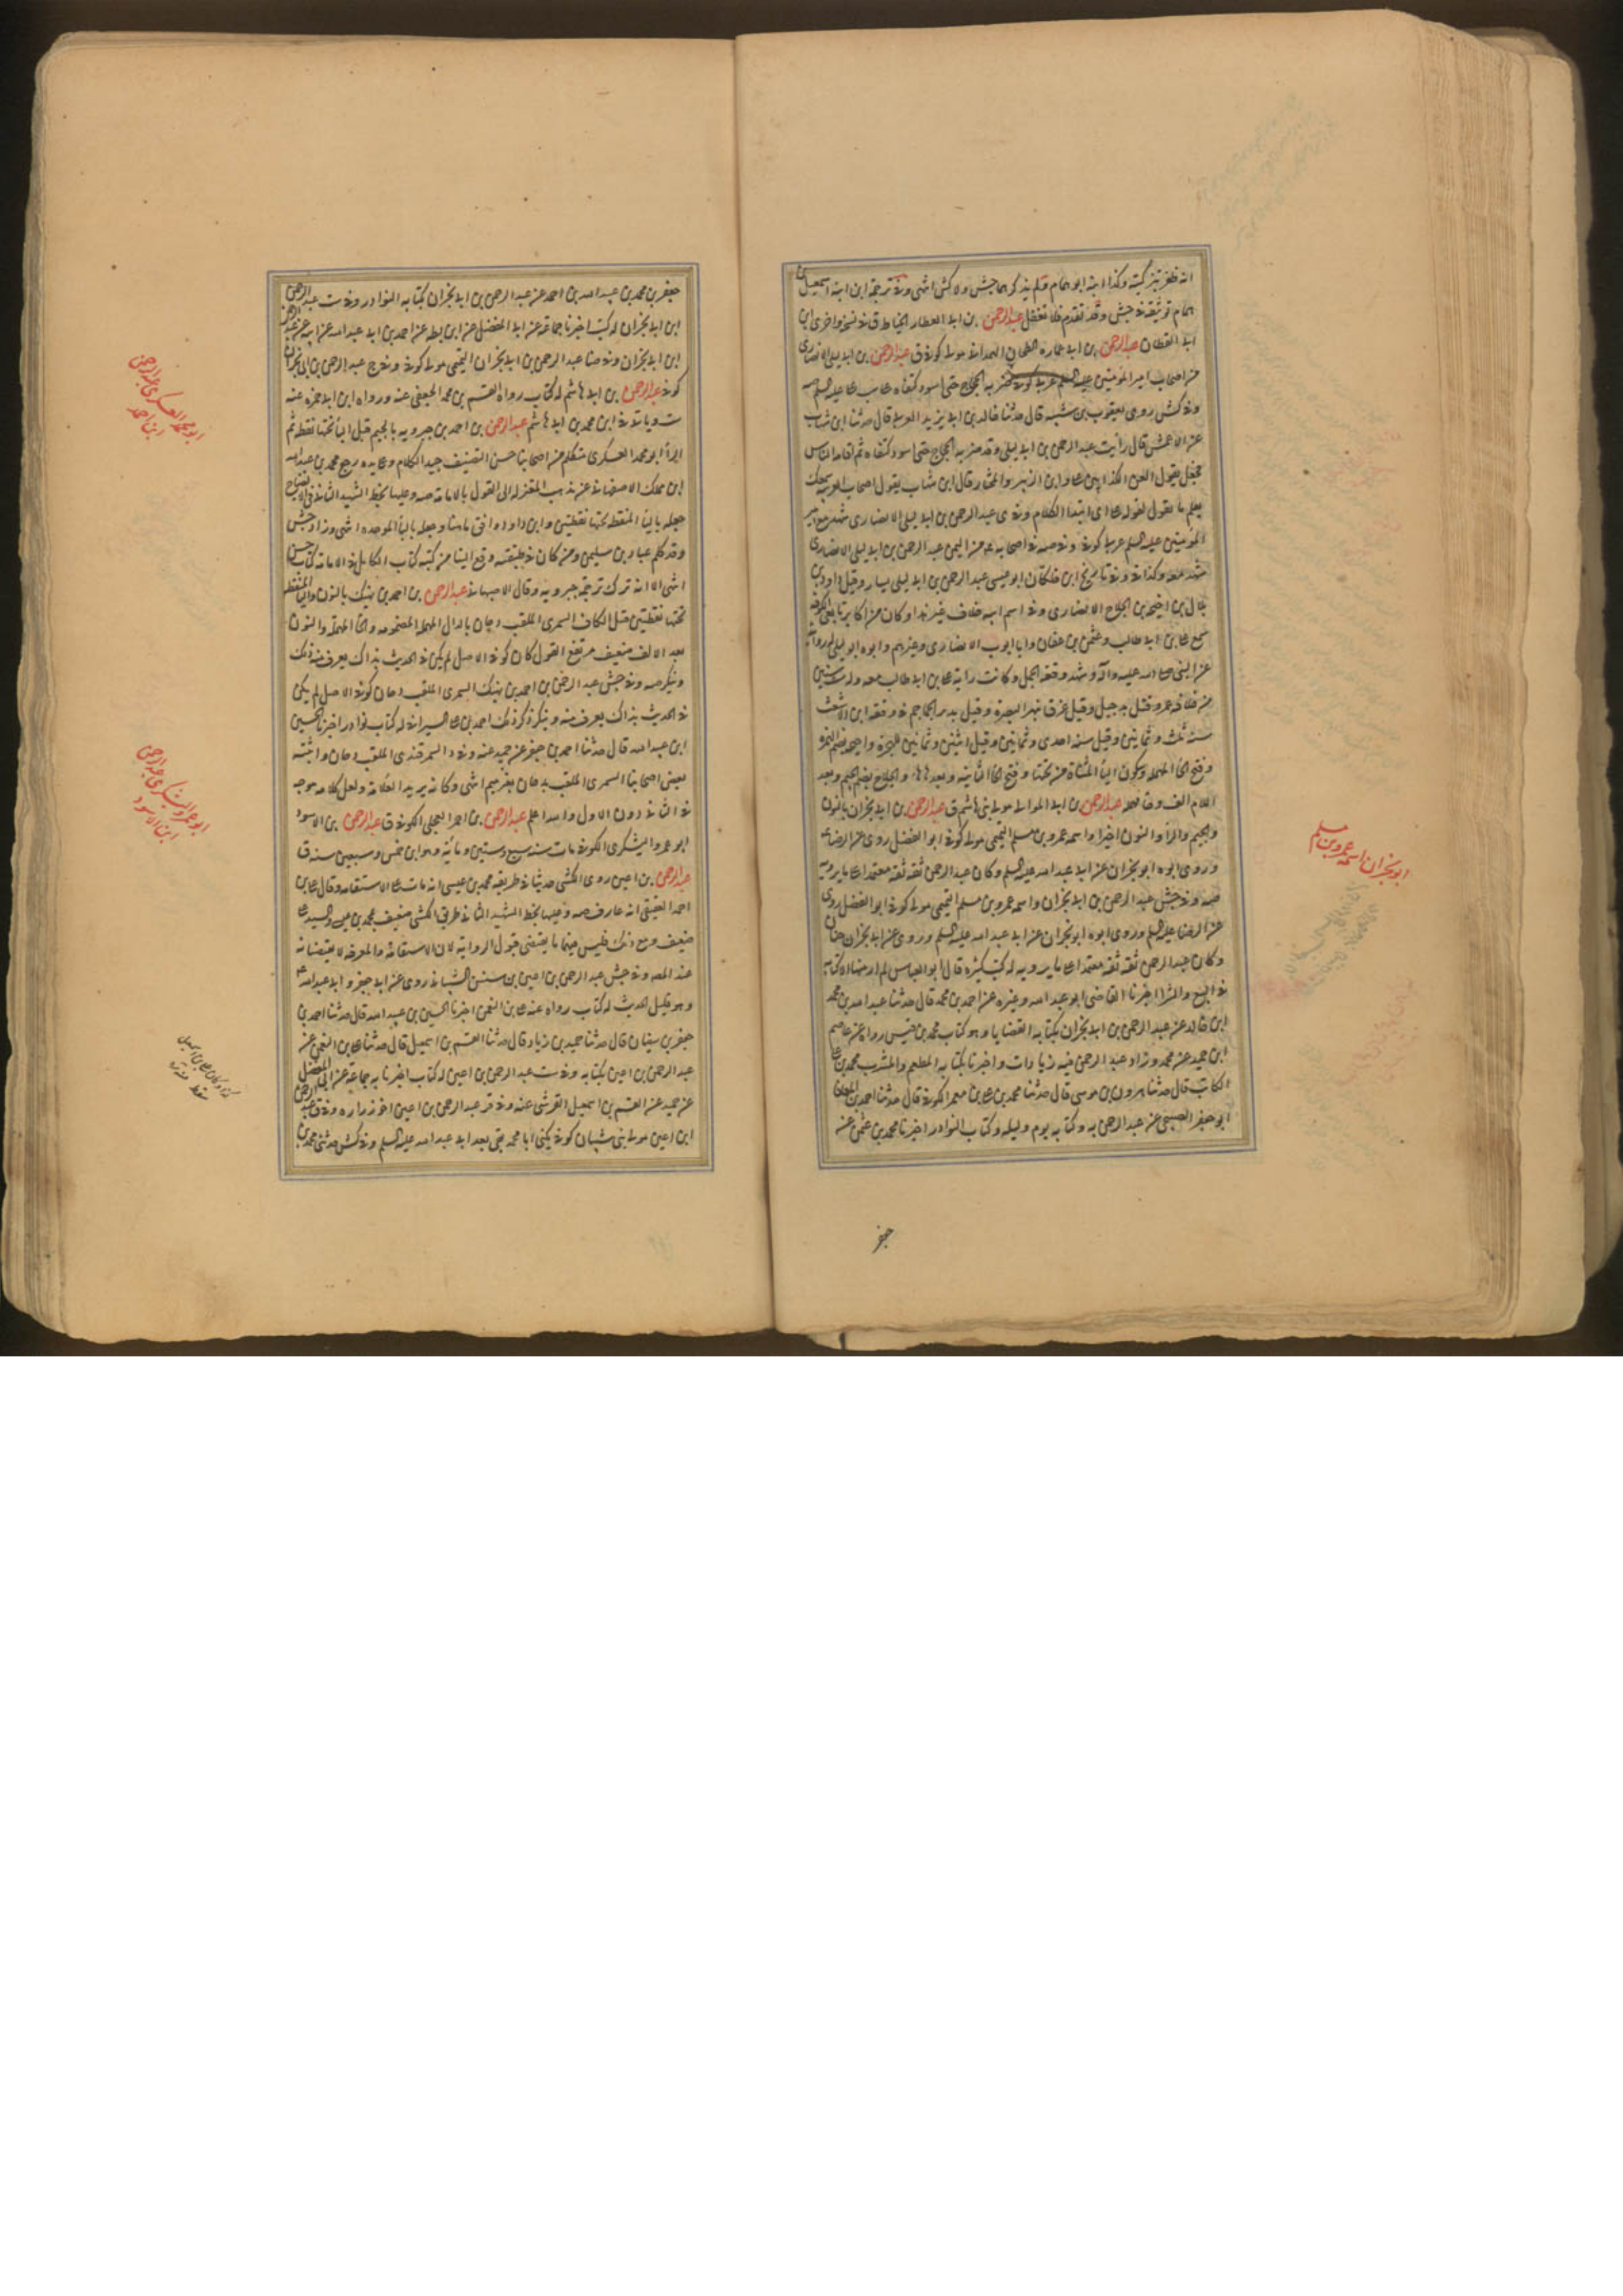 انه ظفر بتزكيته وكذا ابنه ابو همام فلم يذكرهما جش ولا كش انتهى وفي ترجمة ابن ابنه اسمعيل بن
همام توثيقه في جش وقد تقدم فلا تغفل عبدالرحمن بن ابي العطار الخياط ق في نسخه واخرى ابن
ابي القطان عبدالرحمن بن ابي عماره الطحان الهمداني مولى كوفي ق عبدالرحمن بن ابي ليلى الانصاري
من اصحاب امير المؤمنين عليه السلم عربي كوفي ضربه الحجاج حتى اسود كتفاه على سب علي عليه السلم صه
وفي كش روى يعقوب بن شيبه قال حدثنا خالد بن ابي يزيد العربي قال حدثنا ابن شهاب
عن الاعمش قال رأيت عبد الرحمن بن ابي ليلى وقد ضربه الحجاج حتى اسود كتفاه ثم اقامه للناس
فجعل يقول العن الكذابين علي وابن الزبير والمختار قال ابن شهاب يقول اصحاب العربيه سمعك
يعلم ما يقول لقوله علي اي ابتدا الكلام وفي ي عبد الرحمن بن ابي ليلى الانصاري شهد مع امير
المؤمنين عليه السلم عربي كوفي وفي صه في اصحابه ع من اليمن عبد الرحمن بن ابي ليلى الانصاري
شهد معه وكذا في وفي تاريخ ابن خلكان ابو عيسى عبد الرحمن بن ابي ليلى يسار وقيل داود بن
بلال بن احيحه بن الجلاح الانصاري وفي اسم ابيه خلاف غير هذا وكان من اكابر تابعي الكوفه
سمع علي بن ابي طالب وعثمن بن عفان وابا ايوب الانصاري وغيرهم وابوه ابو ليلى له رواية
عن النبي صلى الله عليه وآله وشهد وقعة الجمل وكانت راية علي بن ابي طالب معه ولد لست سنين
من خلافة عمر وقتل بدجيل وقيل غرق في نهر البصرة وقيل بدير الجماجم في وقعة ابن الاشعث
سنة ثلث وثمانين وقيل سنه احدى وثمانين وقيل اثنين وثمانين للهجرة واحيحه بضم الهمزه
وفتح الحا المهمله وسكون اليأ المثناة من تحتها وفتح الحأ الثانيه وبعدها ها والجلاح بضم الجيم وبعد
اللام الف وحا مهمله عبدالرحمن بن ابي الموالي مولى بني هاشم ق عبدالرحمن بن ابي نجران بالنون
والجيم والرأ والنون اخيرا واسمه عمرو بن مسلم التميمي مولى كوفي ابو الفضل روى عن الرضا ع
وروى ابوه ابو نجران عن ابي عبد الله عليه السلم وكان عبد الرحمن ثقه ثقه معتمدا على ما يرويه
صه وفي جش عبد الرحمن بن ابي نجران واسمه عمرو بن مسلم التميمي مولى كوفي ابو الفضل روى
عن الرضا عليه السلم وروى ابوه ابو نجران عن ابي عبد الله عليه السلم وروى عن ابي نجران حنان
وكان عبد الرحمن ثقه ثقه معتمدا على ما يرويه له كتب كثيره قال ابو العباس لم ار منها الا كتابه
في البيع والشرا اخبرنا القاضي ابو عبد الله وغيره عن احمد بن محمد قال حدثنا عبد الله بن محمد
ابن خالد عن عبد الرحمن بن ابي نجران بكتابه القضايا وهو كتاب محمد بن قيس رواه عن عاصم
ابن حميد عن محمد وزاد عبد الرحمن فيه زيادات واخبرنا بكتابه المطعم والمشرب محمد بن علي
الكاتب قال حدثنا هرون بن موسى قال حدثنا محمد بن علي بن معمر الكوفي قال حدثنا احمد بن المعافى
ابو جعفر الصبيحي عن عبد الرحمن به وكتابه يوم وليله وكتاب النوادر اخبرنا محمد بن عثمن عنه
جعفر
ابو نجران اسمه عمرو بن مسلم
جعفر بن محمد بن عبيد الله بن احمد عن عبد الرحمن بن ابي نجران بكتابه النوادر وفي ست عبد الرحمن
ابن ابي نجران له كتب اخبرنا جماعة عن ابي المفضل عن ابن بطه عن احمد بن ابي عبد الله عن ابيه عن عبد الرحمن
ابن ابي نجران وفي ضا عبد الرحمن بن ابي نجران التميمي مولى كوفي وفي ج عبد الرحمن بن ابي نجران
كوفي عبدالرحمن بن ابي هاشم له كتاب رواه القسم بن محمد الجعفي عنه ورواه ابن ابي حمزه عنه
ست وياتي في ابن محمد بن ابي هاشم عبدالرحمن بن احمد بن جبرويه بالجيم قبل اليأ تحتها نقطه ثم
الرأ ابو محمد العسكري متكلم من اصحابنا حسن التصنيف جيد الكلام وعلى يده رجع محمد بن عبد الله
ابن مملك الاصفهاني عن مذهب المعتزله الى القول بالامامة صه وعليها بخط الشهيد الثاني في الايضاح
جعله باليأ المنقطه تحتها نقطتين وابن داود وافق ما هنا وجعله بالبأ الموحده انتهى وزاد جش
وقد كلم عباد بن سليمن ومن كان في طبقته وقع الينا من كتبه كتاب الكامل في الامامة كتاب حسن
انتهى الا انه ترك ترجمة جبرويه وقال الاصبهاني عبدالرحمن بن احمد بن نهيك بالنون واليأ المنقطه
تحتها نقطتين قبل الكاف السمري الملقب دحان بالدال المهمله المضمومه والحأ المهمله والنون
بعد الالف ضعيف مرتفع القول كان كوفي الاصل لم يكن في الحديث بذاك يعرف منه ذلك
وينكر صه وفي جش عبد الرحمن بن احمد بن نهيك السمري الملقب دحان كوفي الاصل لم يكن
في الحديث بذاك يعرف منه وينكر ذكر ذلك احمد بن علي السيرافي له كتاب نوادر اخبرنا الحسين
ابن عبيد الله قال حدثنا احمد بن جعفر عن حميد عنه وفي د السمرقندي الملقب دحان واثبته
بعض اصحابنا السمري الملقب بدحان بغير ميم انتهى وكانه يريد العلامة ولعل كلامه موجه
في الثاني دون الاول والله اعلم عبدالرحمن بن احمر العجلي الكوفي ق عبدالرحمن بن الاسود
ابو عمرو اليشكري الكوفي مات سنه سبع وستين ومائه وهو ابن خمس وسبعين سنه ق
عبدالرحمن بن اعين روى الكشي حديثا في طريقه محمد بن عيسى انه مات على الاستقامه وقال علي بن
احمد العقيقي انه عارف صه وعليها بخط الشهيد الثاني طريق الكشي ضعيف بمحمد بن عيسى والسيد علي
ضعيف ومع ذلك فليس فيهما ما يقتضي قبول الروايه لان الاستقامة والمعرفه لا يقتضيانه
عند المصه وفي جش عبد الرحمن بن اعين بن سنسن الشيباني روى عن ابي جعفر وابي عبد الله ع
وهو قليل الحديث له كتاب رواه عنه علي بن النعمن اخبرنا الحسين بن عبيد الله قال حدثنا احمد بن
جعفر بن سفيان قال حدثنا حميد بن زياد قال حدثنا القسم بن اسمعيل قال حدثنا علي بن النعمن عن
عبد الرحمن بن اعين بكتابه وفي ست عبد الرحمن بن اعين له كتاب اخبرنا به جماعة عن ابي المفضل
عن حميد عن القسم بن اسمعيل القرشي عنه وفي قر عبد الرحمن بن اعين اخو زراره وفي ق عبد الرحمن
ابن اعين مولى بني شيبان كوفي يكنى ابا محمد بقي بعد ابي عبد الله عليه السلم وفي كش حدثني محمد بن
ابو محمد العسكري عبد الرحمن
ابن احمد
ابو عمرو اليشكري عبد الرحمن
ابن الاسود